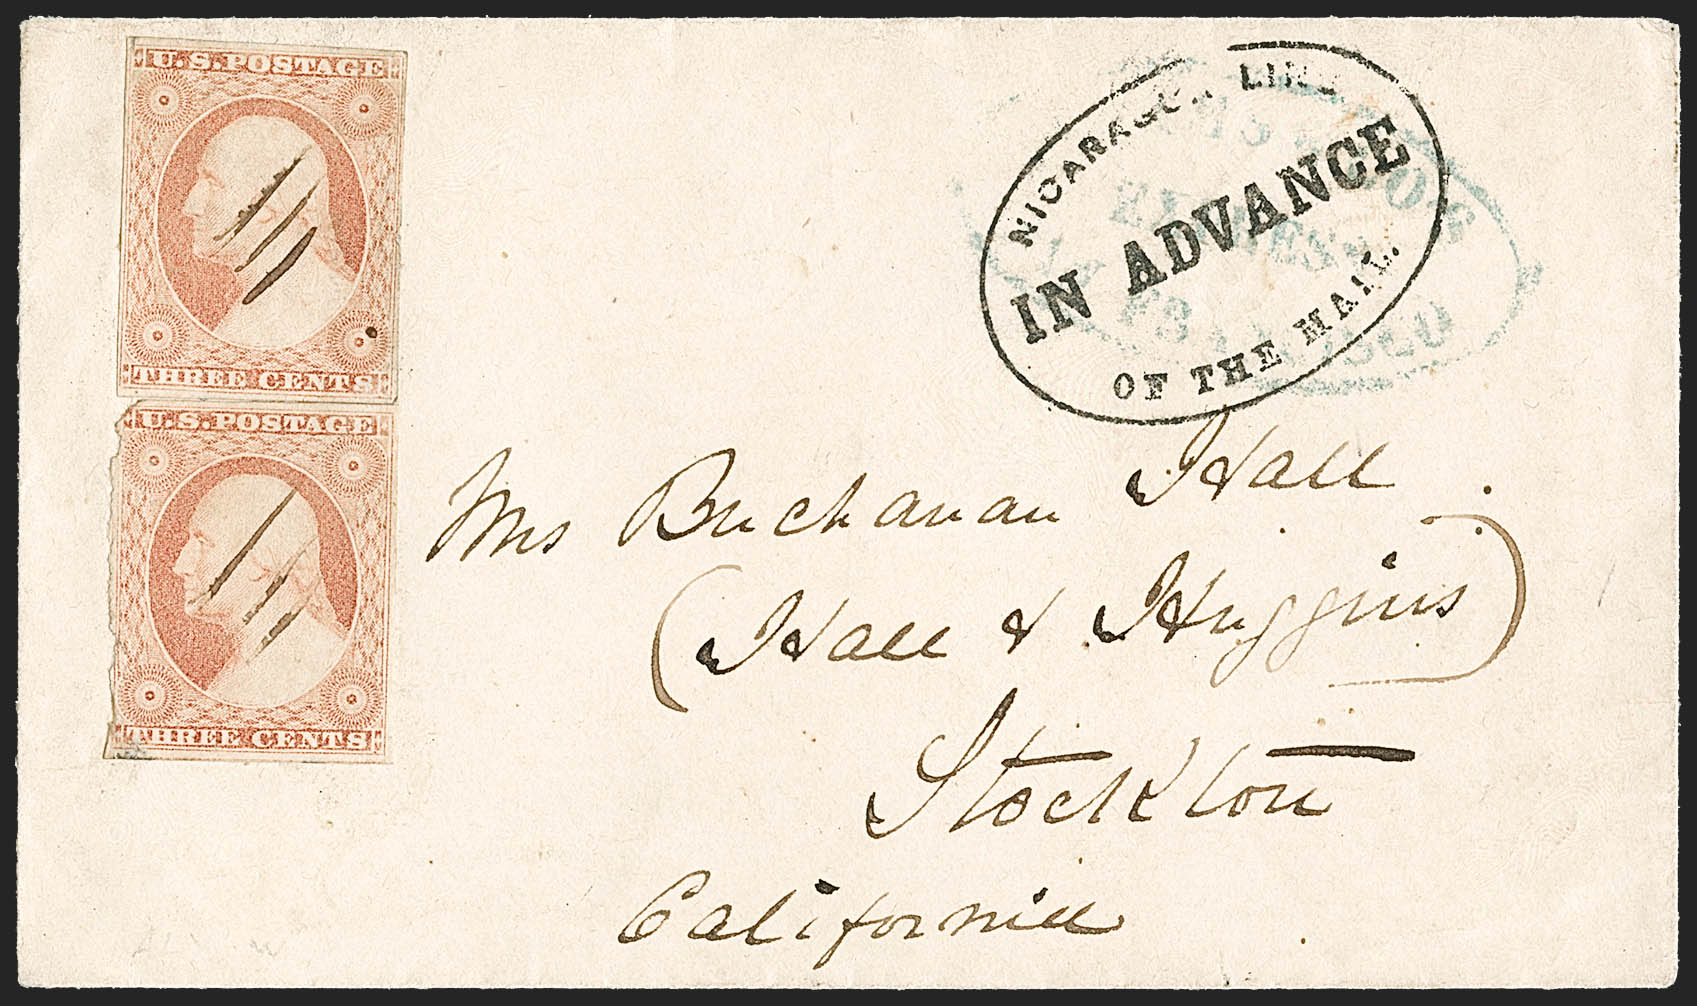 U.S. POSTAGE
THREE CENTS
U.S. POSTAGE
THREE CENTS
NICARAGUA LINE
IN ADVANCE
OF THE MAIL.
EXPRESS
Mrs Buchanan Hall
(Hall & Huggins)
Stockton
California